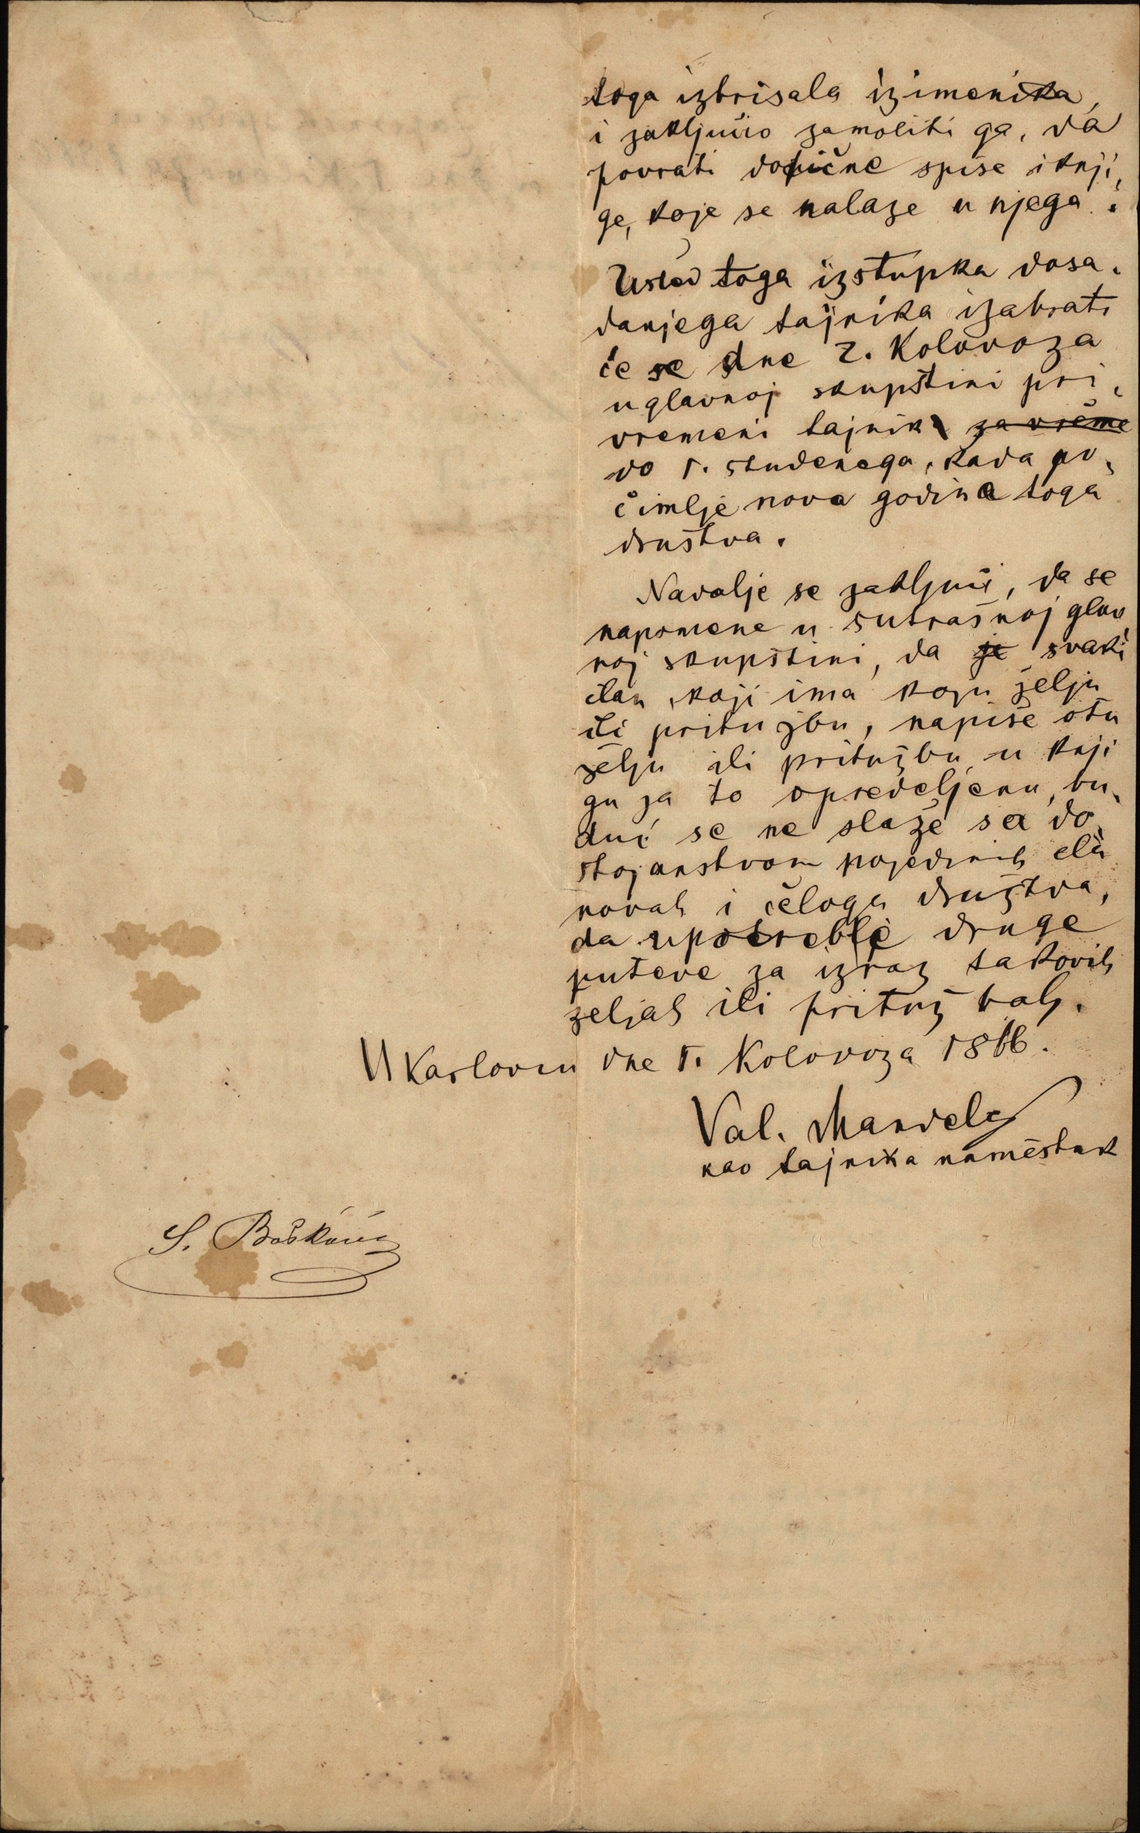 toga izbrisala iz imenika,
i zaključio zamoliti ga, da
povrati dotične spise i knji„
ge, koje se nalaze u njega.
Usled toga izstupka dosa„
danjega tajnika izabrati
će se dne 2. Kolovoza
u glavnoj skupštini pri„
vremeni tajnik za vrěme
do 1. studenega, kada po„
čimlje nova godina toga
društva.
Nadalje se zaključi, da se
napomene u sutrašnjoj glav„
noj skupštini, da je svaki
član, koji ima koju želju
ili pritužbu, napiše otu
želju ili pritužbu u knji
gu za to opredeljenu, bu„
dući se ne slaže sa do„
stojanstvom pojedinih čla
novah i cěloga društva,
da upotreblje druge
puteve za izraz takovih
željah ili pritužbah.
U Karlovcu dne 1. Kolovoza 1866.
Val. Mandelc
kao tajnika naměstnik
S. Bošković